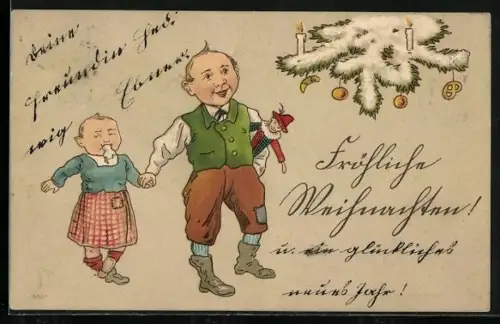 Deine
Freundin Hed
wig Ebner
Fröhliche
Weihnachten!
u. ein glückliches
neues Jahr!